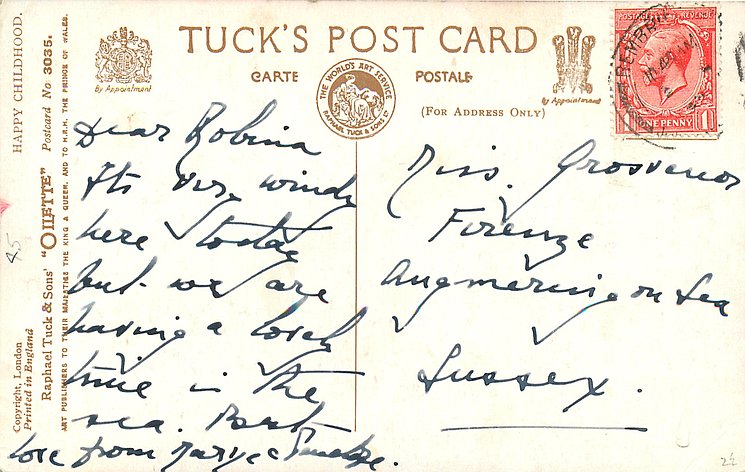 TUCK'S POST CARD
CARTE POSTALE
By Appointment
THE WORLD'S ART SERVICE
RAPHAEL TUCK & SONS LTD
By Appointment
(FOR ADDRESS ONLY)
POSTAGE REVENUE
ONE PENNY 1
HAPPY CHILDHOOD.
Raphael Tuck & Sons' "OILETTE" Postcard No 3035.
ART PUBLISHERS TO THEIR MAJESTIES THE KING & QUEEN, AND TO H.R.H. THE PRINCE OF WALES.
Copyright, London
Printed in England
45
Dear Robina
Its very windy
here today
but we are
having a lovely
time in the
sea. Best
love from Mary & Penelope.
Miss. Grosvenor
Firenze
Angmering on Sea
Sussex.
22